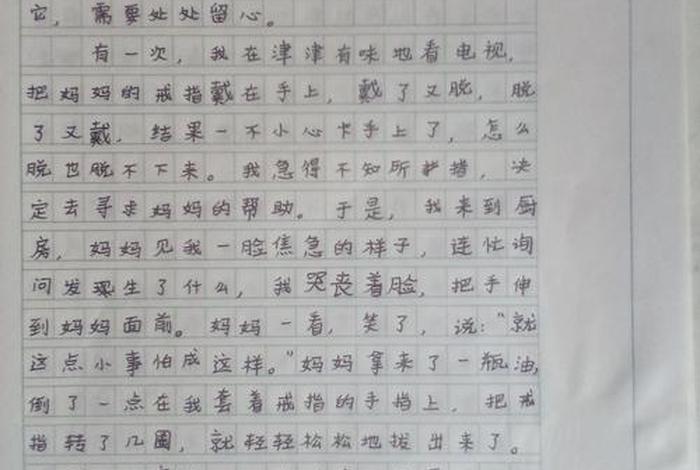 它，需要处处留心。
有一次，我在津津有味地看电视，
把妈妈的戒指戴在手上，戴了又脱，脱
了又戴，结果一不小心卡手上了，怎么
脱也脱不下来。我急得不知所措，决
定去寻求妈妈的帮助。于是，我来到厨
房，妈妈见我一脸焦急的样子，连忙询
问发现生了什么，我哭丧着脸，把手伸
到妈妈面前。妈妈一看，笑了，说："就
这点小事怕成这样。"妈妈拿来了一瓶油，
倒了一点在我套着戒指的手指上，把戒
指转了几圈，就轻轻松松地拔出来了。